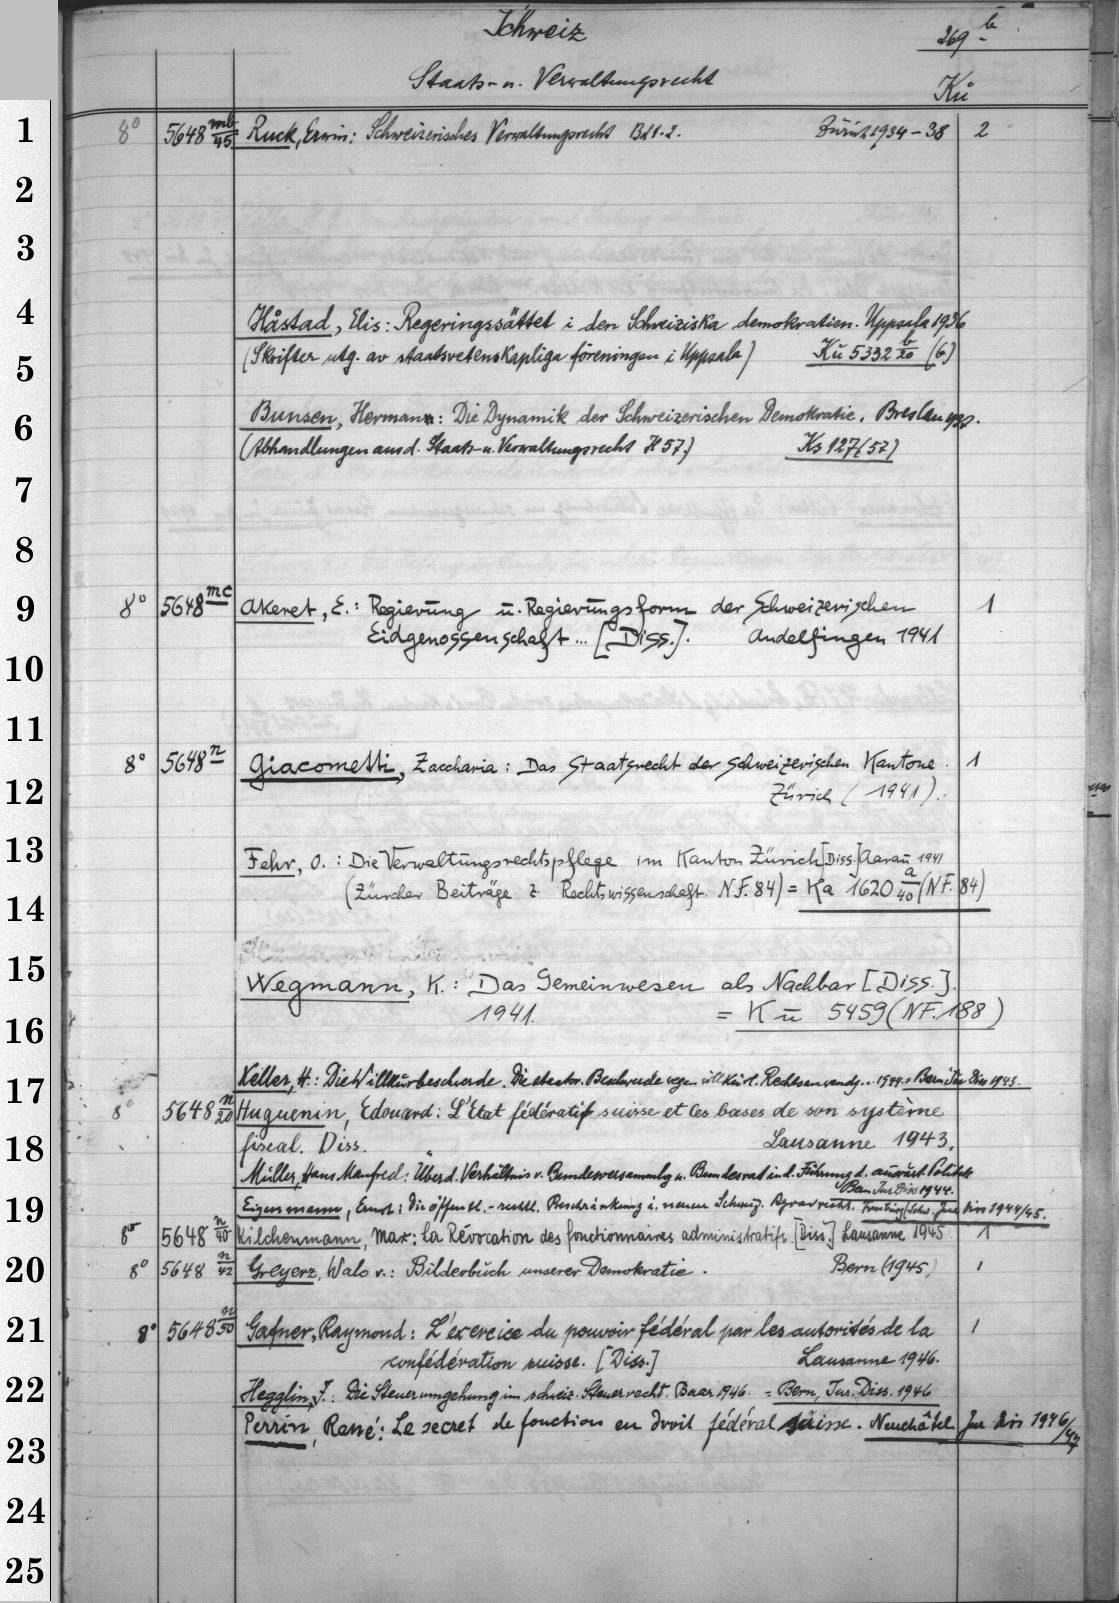 Schweiz
269 b
Staats- u. Verwaltungsrecht
Kü
1 8° 5648 mb/45 Ruck, Erwin: Schweizerisches Verwaltungsrecht Bd 1. 2. Zürich 1934-38 2
2
3
4 Håstad, Elis: Regeringssättet i den Schweiziska demokratien. Uppsala 1936
5 (Skrifter utg. av statsvetenskapliga föreningen i Uppsala) Kü 5332 b/20 (6)
6 Bunsen, Hermann: Die Dynamik der Schweizerischen Demokratie. Breslau 1930.
(Abhandlungen aus d. Staats- u. Verwaltungsrecht H 57.) Ks 127 (57)
7
8
9 8° 5648 mc Akeret, E.: Regierung u. Regierungsform der Schweizerischen 1
Eidgenossenschaft ... [Diss.]. Andelfingen 1941
10
11
8° 5648 n Giacometti, Zaccharia: Das Staatsrecht der schweizerischen Kantone. 1
12 Zürich (1941).
13 Fehr, O.: Die Verwaltungsrechtspflege im Kanton Zürich [Diss.] Aarau 1941
14 (Zürcher Beiträge z. Rechtswissenschaft. N.F. 84) = Ka 1620 a/40 (NF. 84)
15 Wegmann, K.: Das Gemeinwesen als Nachbar [Diss.].
16 1941. = Kü 5459 (NF. 188)
17 Keller, H.: Die Willkürbeschwerde. Die staatsr. Beschwerde wegen willkürl. Rechtsanwendg... 1944. = Bern Jur Diss 1943.
8° 5648 n/20 Huguenin, Edouard: L'Etat fédératif suisse et les bases de son système
18 fiscal. Diss. Lausanne 1943.
Müller, Hans Manfred: Über d. Verhältnis v. Bundesversammlg u. Bundesrat in d. Führung d. auswärt. Politik
Bern Jur Diss 1944.
19 Eigenmann, Ernst: Die öffentl.-rechtl. Beschränkung i. neuen Schweiz. Agrarrecht. Freiburg/Schw. Jur Diss 1944/45.
8° 5648 n/40 Kilchenmann, Max: La Révocation des fonctionnaires administratifs [Diss.] Lausanne 1945 1
20 8° 5648 n/42 Greyerz, Walo v.: Bilderbuch unserer Demokratie. Bern (1945) 1
21 8° 5648 n/50 Gafner, Raymond: L'exercice du pouvoir fédéral par les autorités de la 1
confédération suisse. [Diss.] Lausanne 1946.
22 Hegglin, J.: Die Steuerumgehung im schweiz. Steuerrecht. Baar 1946. = Bern, Jur. Diss. 1946
23 Perrin, René: Le secret de fonction en droit fédéral suisse. Neuchâtel Jur Diss 1946/47
24
25